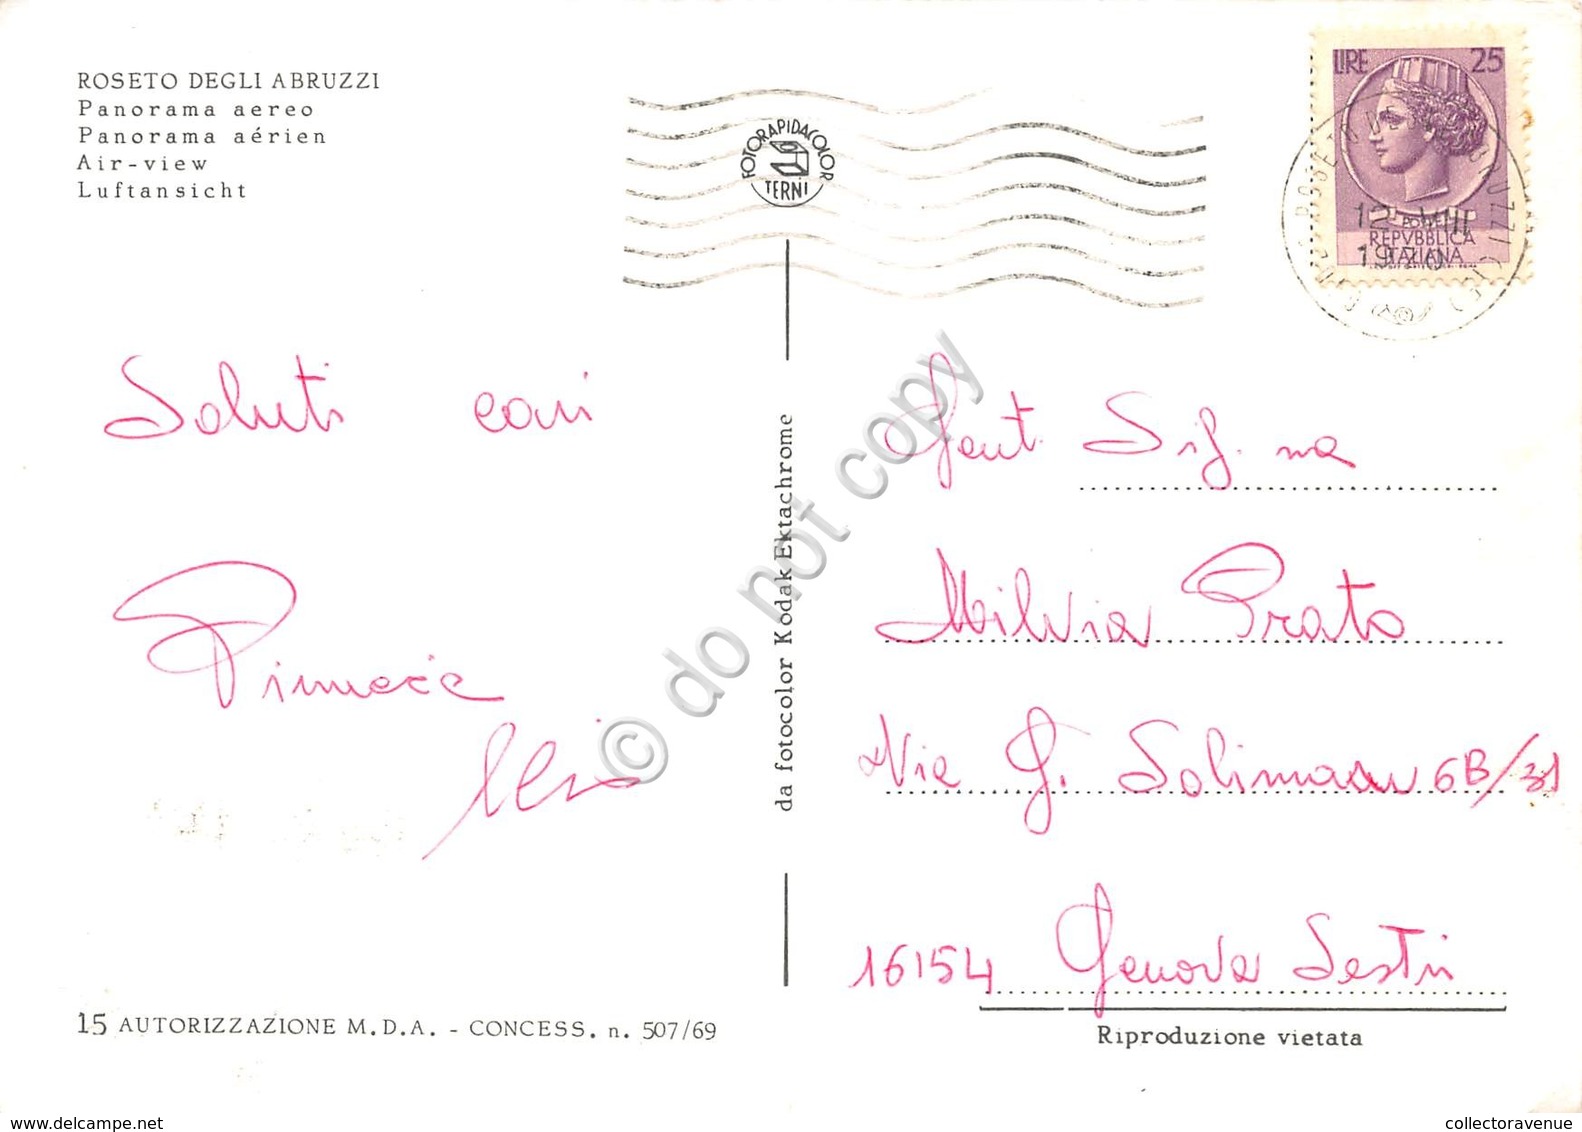 ROSETO DEGLI ABRUZZI
Panorama aereo
Panorama aérien
Air-view
Luftansicht
FOTORAPIDACOLOR
TERNI
LIRE 25
POSTE
REPVBBLICA
ITALIANA
12 VIII
1970
Saluti cari
da fotocolor Kodak Ektachrome
Gent. Sig.na
Milvia Prato
Via G. Soliman 6B/31
16154 Genova Sestri
15 AUTORIZZAZIONE M.D.A. - CONCESS. n. 507/69
Riproduzione vietata
© do not copy
www.delcampe.net
collectoravenue